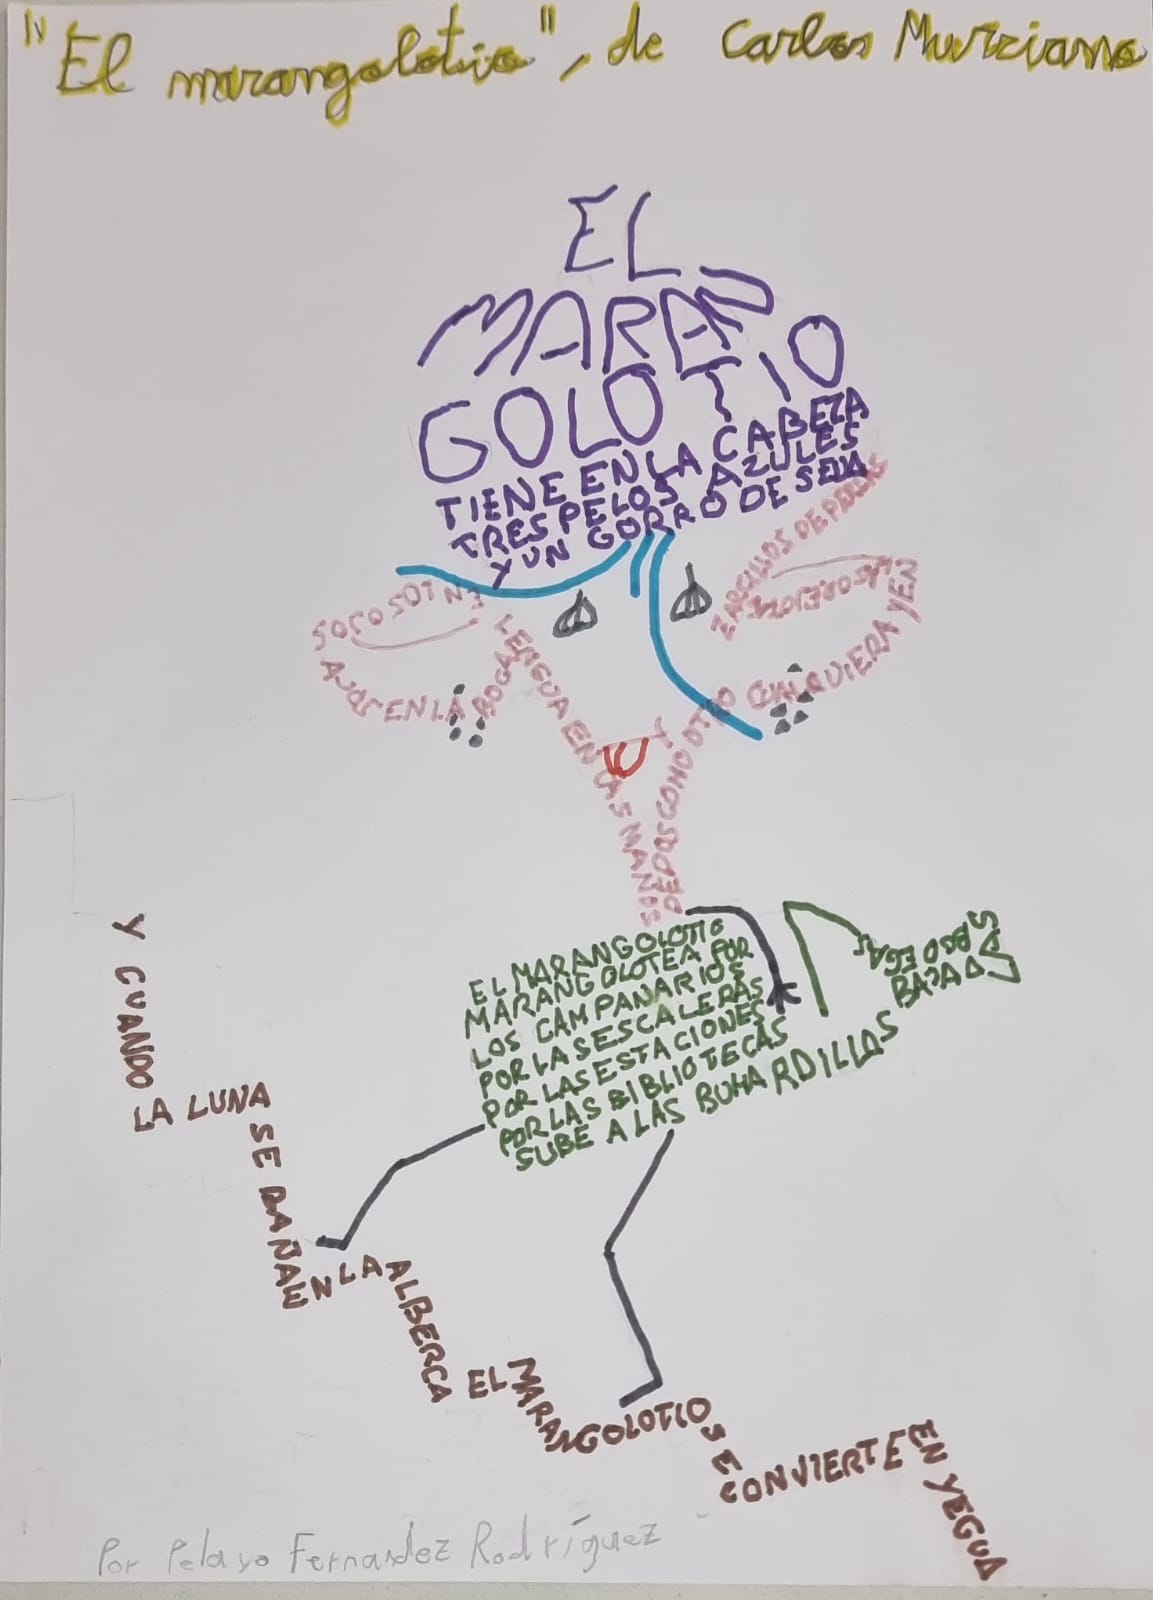 "El marangolotio", de Carlos Murciano
EL
MARAN
GOLOTIO
TIENE EN LA CABEZA
TRES PELOS AZULES
Y UN GORRO DE SEDA
EN LOS OJOS
AJOS EN LA BOCA
LENGUA EN LAS MANOS
DEDOS COMO OTRO
CUALQUIERA Y EN
LAS OREJOTAS
ZARCILLOS DE PERLAS
EL MARANGOLOTIO
MARANGOLOTEA POR
LOS CAMPANARIOS
POR LAS ESCALERAS
POR LAS ESTACIONES
POR LAS BIBLIOTECAS
SUBE A LAS BUHARDILLAS
BAJA A LAS
BODEGAS
Y CUANDO
LA LUNA
SE BAÑA E
N LA
ALBERCA
EL
MARANGOLOTIO
SE
CONVIERTE
EN YEGUA
Por Pelayo Fernandez Rodríguez